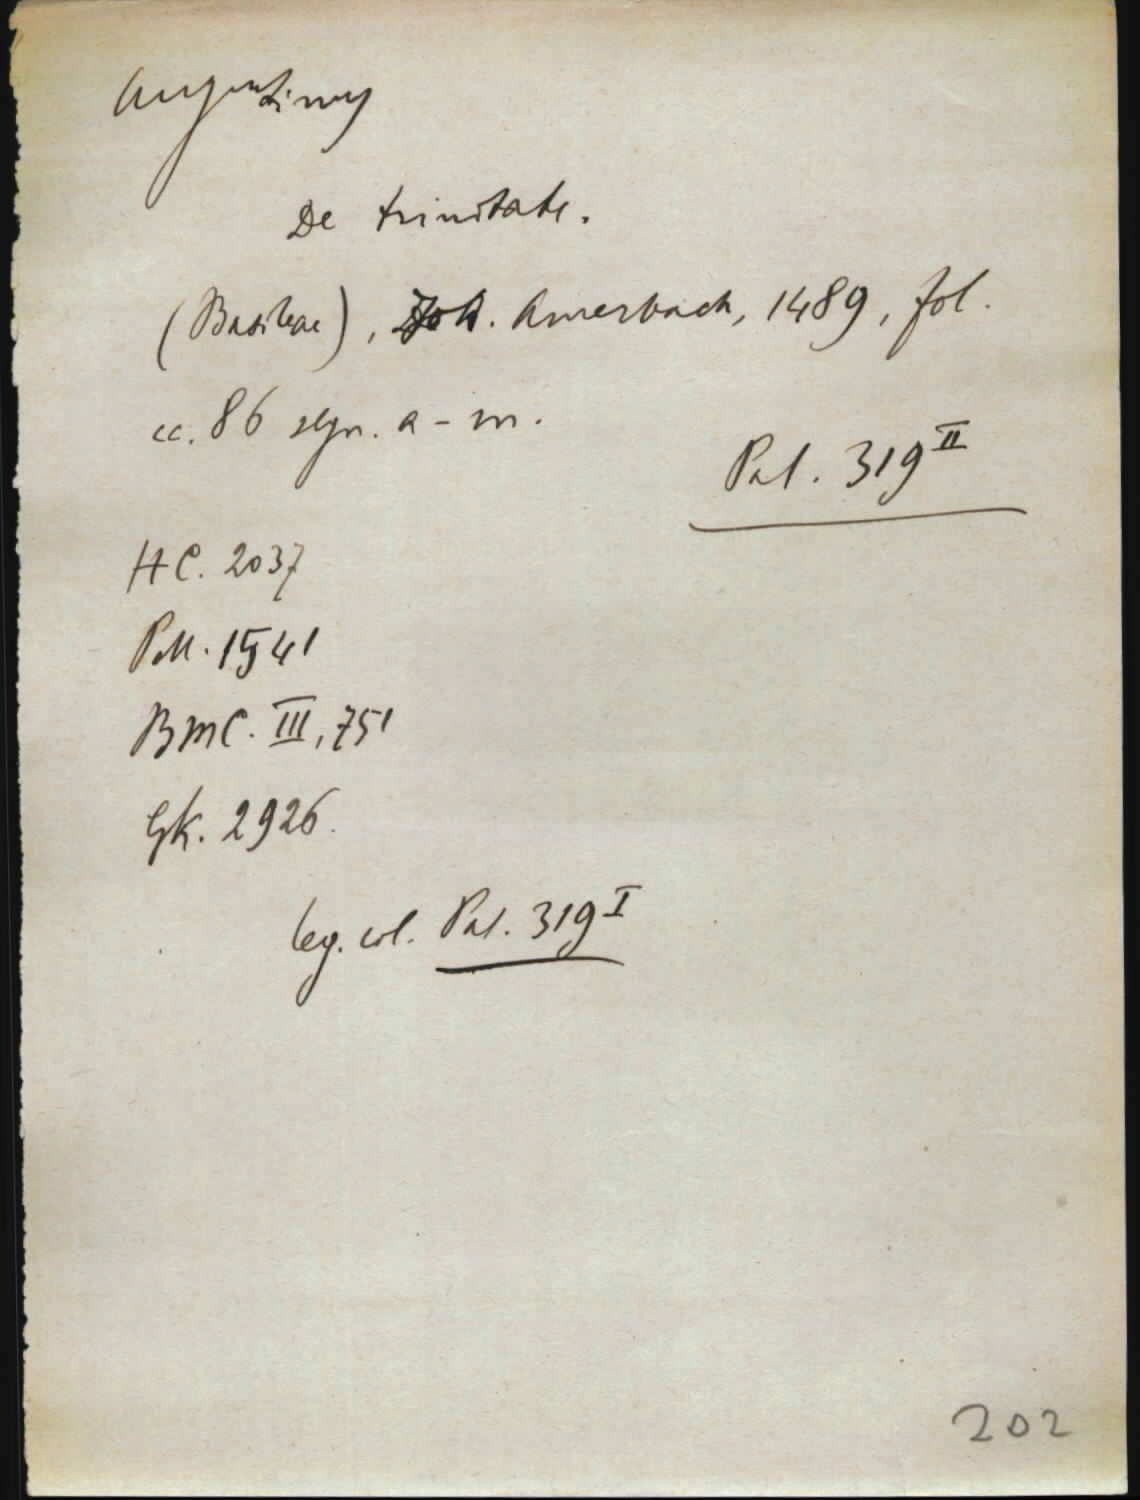 Augustinus
De trinitate.
(Basileae), Joh. Amerbach, 1489, fol.
cc. 86 sign. a - m.
Pal. 319 II
HC. 2037
Pell. 1541
BMC. III, 751
GK. 2926.
leg. col. Pal. 319 I
202